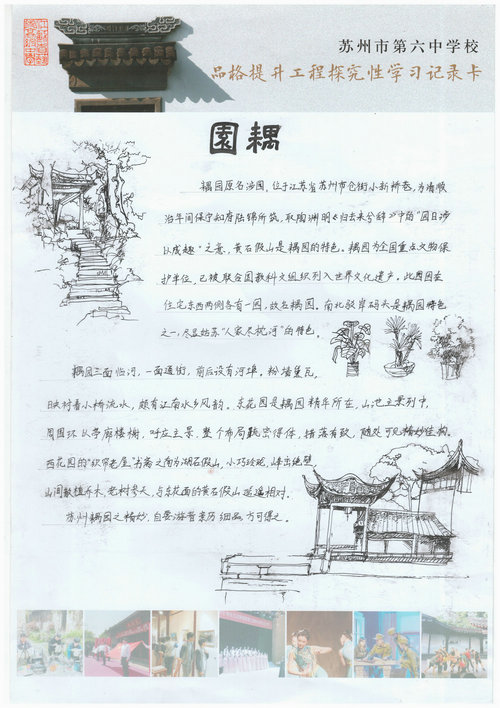 苏州市第六中学校
品格提升工程探究性学习记录卡
園耦
耦园原名涉园，位于江苏省苏州市仓街小新桥巷，为清顺
治年间保宁知府陆锦所筑，取陶渊明《归去来兮辞》中的“园日涉
以成趣”之意，黄石假山是耦园的特色。耦园为全国重点文物保
护单位，已被联合国教科文组织列入世界文化遗产。此园因在
住宅东西两侧各有一园，故名耦园。南北驳岸码头是耦园特色
之一，尽显姑苏“人家尽枕河”的特色。
耦园三面临河，一面通街，前后设有河埠。粉墙黛瓦，
映对着小桥流水，颇有江南水乡风韵。东花园是耦园精华所在，山池主景列中，
周围环以亭廊楼榭，呼应主景，整个布局疏密得体，错落有致，随处可见精妙结构。
西花园的“织帘老屋”书斋之南为湖石假山，小巧玲珑，峰出绝壁，
山间散植乔木，老树参天，与东花园的黄石假山遥遥相对。
苏州耦园之精妙，自要游者亲历细品方可得之。